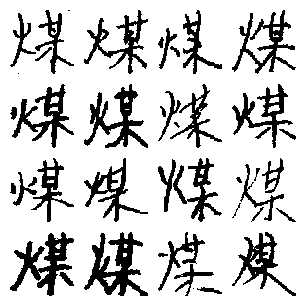 煤煤煤煤
煤煤煤煤
煤煤煤煤
煤煤煤煤